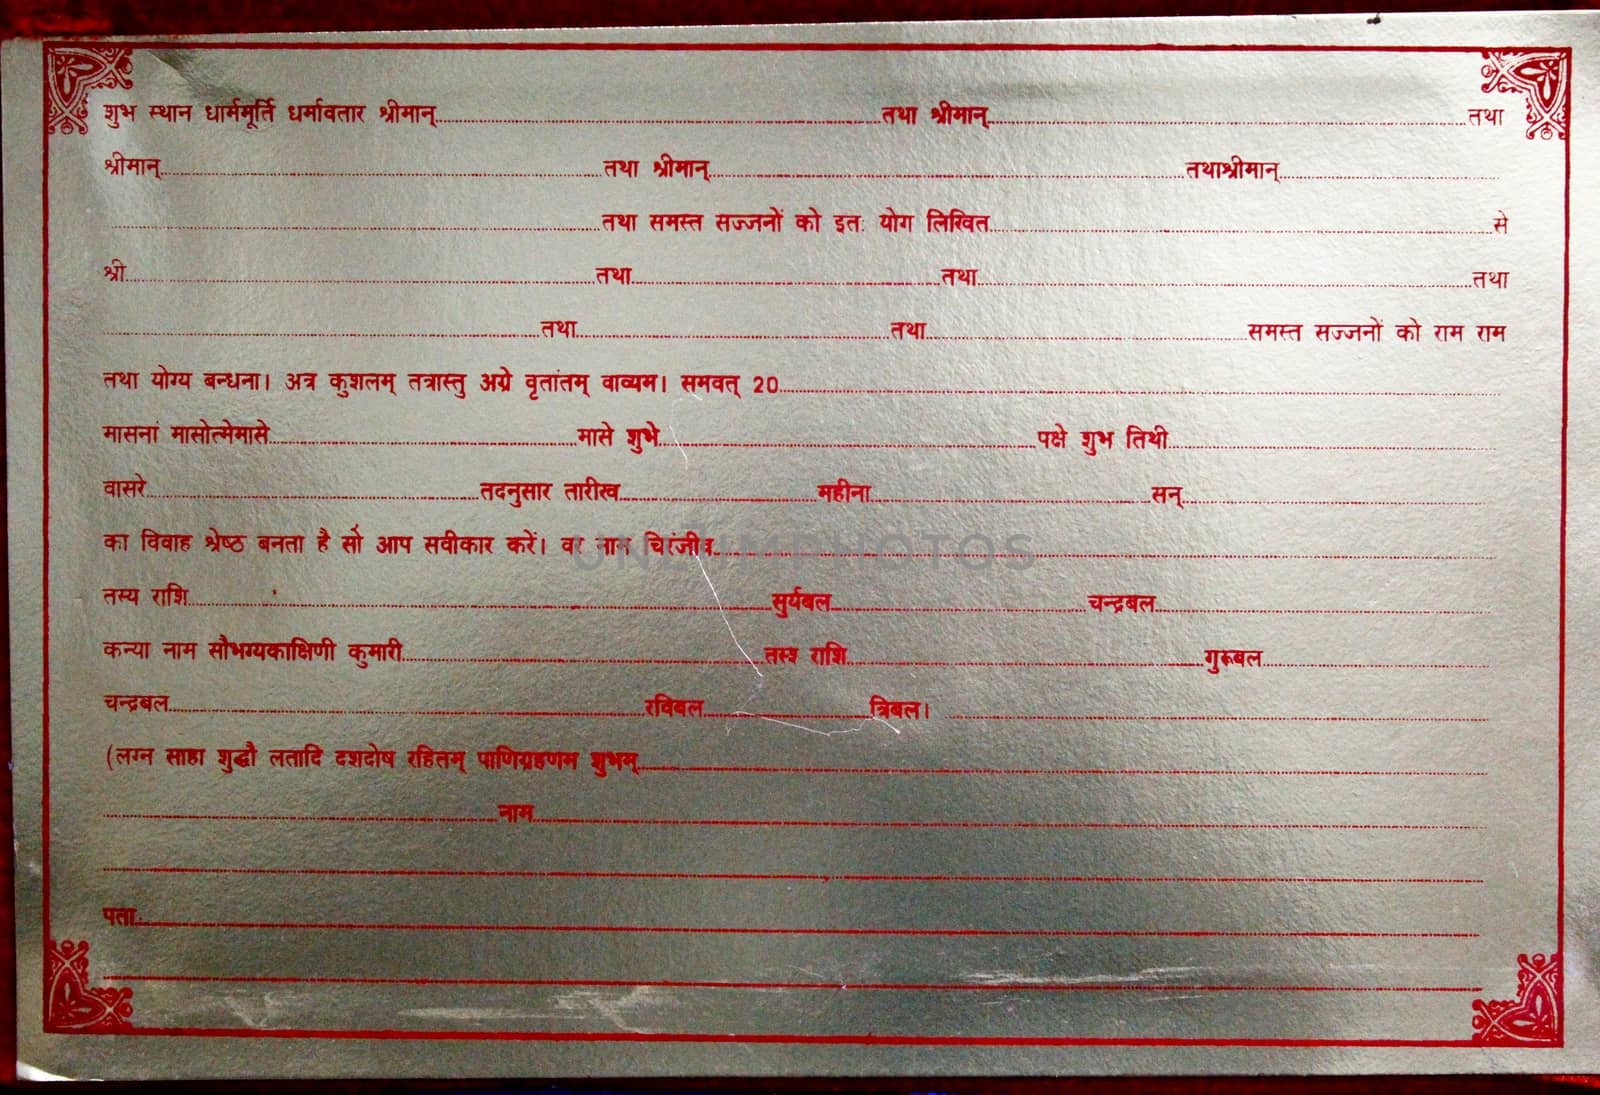 शुभ स्थान धार्ममूर्ति धर्मावतार श्रीमान्........ तथा श्रीमान्........ तथा
श्रीमान्........ तथा श्रीमान्........ तथाश्रीमान्........
........ तथा समस्त सज्जनों को इतः योग लिखित........ से
श्री........ तथा........ तथा........ तथा
........ तथा........ तथा........ समस्त सज्जनों को राम राम
तथा योग्य बन्धना। अत्र कुशलम् तत्रास्तु अग्रे वृतांतम् वाव्यम। समवत् 20........
मासनां मासोत्मेमासे........ मासे शुभे........ पक्षे शुभ तिथी........
वासरे........ तदनुसार तारीख........ महीना........ सन्........
का विवाह श्रेष्ठ बनता है सो आप सवीकार करें। वर नाम चिरंजीव........
तस्य राशि........ सुर्यबल........ चन्द्रबल........
कन्या नाम सौभग्यकाक्षिणी कुमारी........ तस्य राशि........ गुरूबल........
चन्द्रबल........ रविबल........ त्रिबल। ........
(लग्न साहा शुद्धौ लतादि दशदोष रहितम् पाणिग्रहणम शुभम्........
........ नाम........
पता........
UNLISTEDPHOTOS